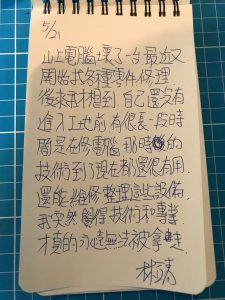 5/21
山上電腦壞了一台 最近又
開始找各種零件修理
後來我才想到 自己還沒有
進入工地前 有很長一段時
間是在修電腦 那時候的
技術到了現在都還很有用
還能維修整理這些設備
我突然覺得技術和專業
才真的永遠無法被拿走